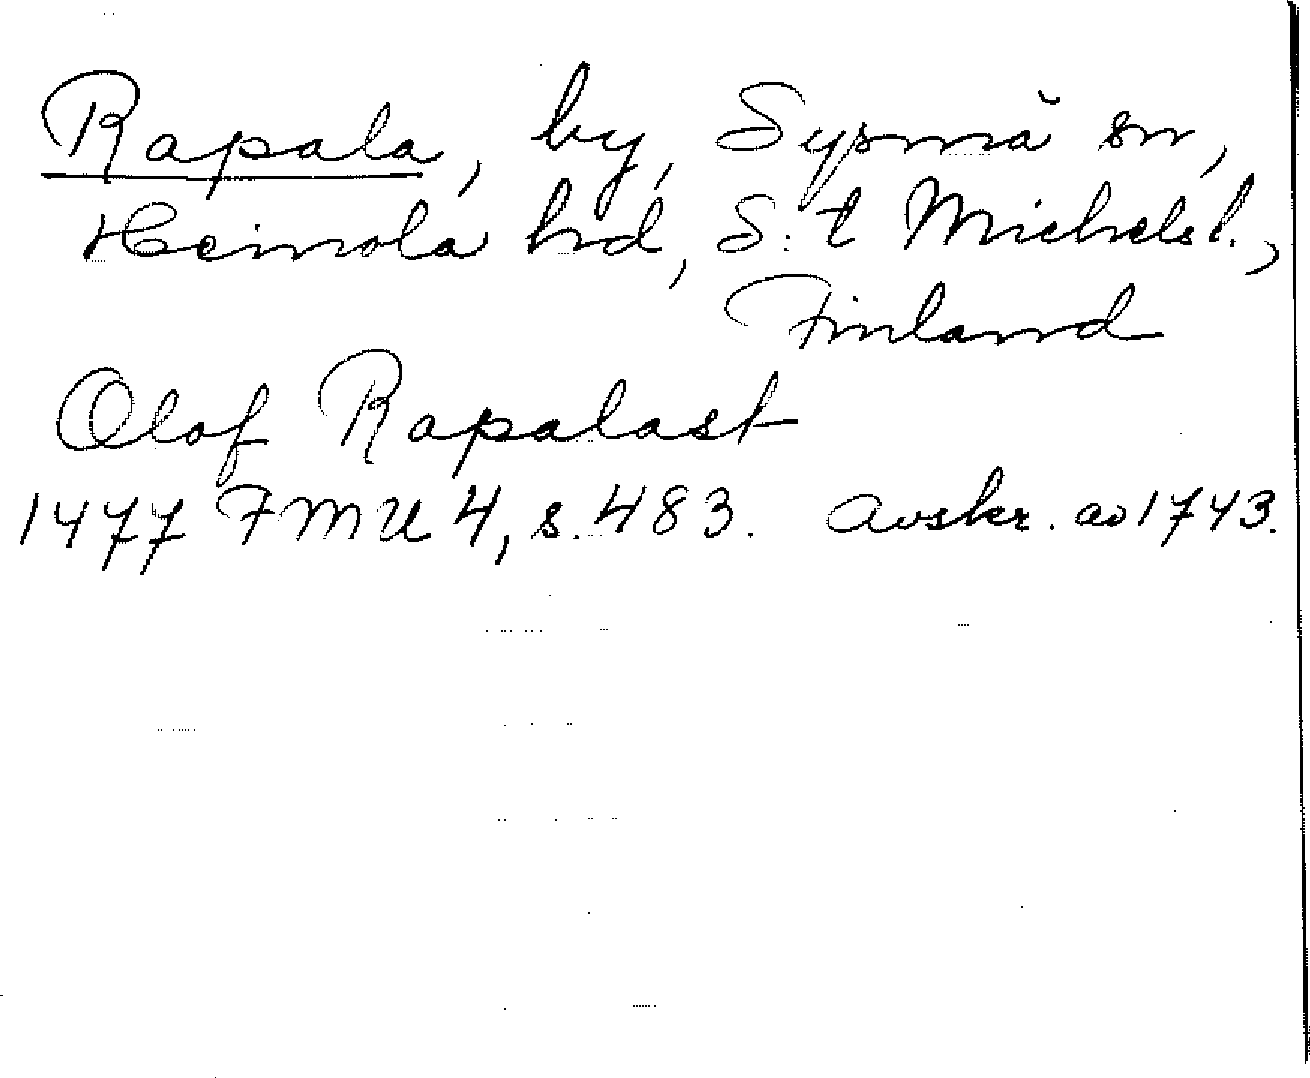 Rapala, by, Sysmä sn,
Heinola hd, S:t Michels l.,
Finland
Olof Rapalast
1477 FMU 4, s. 483. Avskr. av 1743.